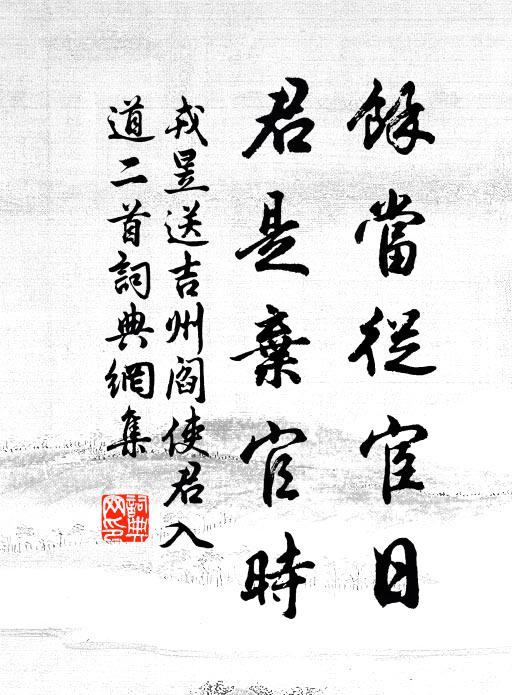 餘當從宦日
君是棄官時
戎昱送吉州閻使君入
道二首詞典網集
詞典網印